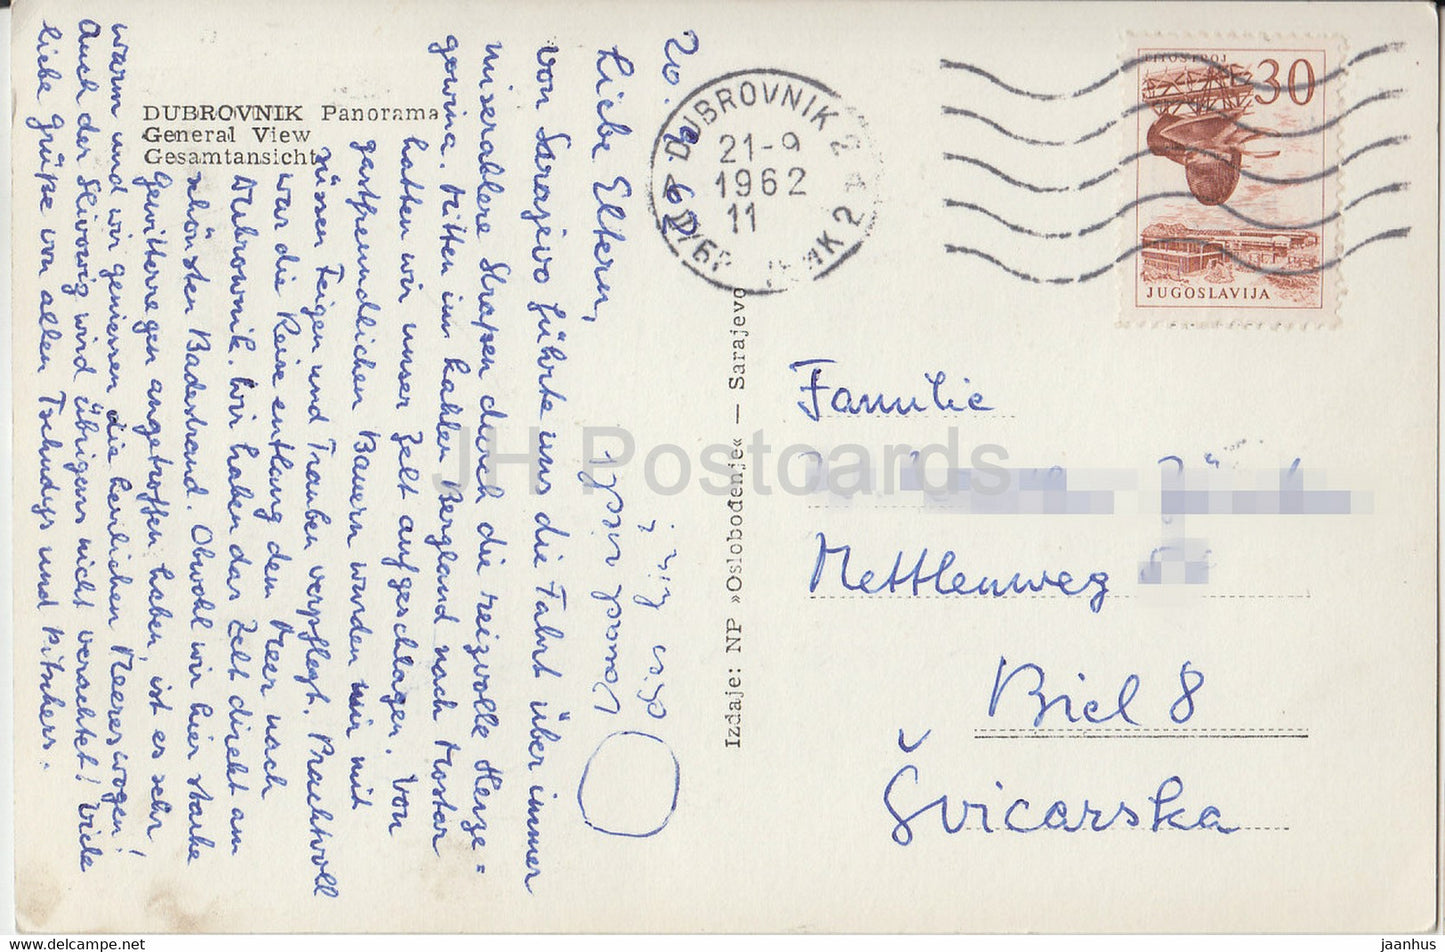 DUBROVNIK Panorama
General View
Gesamtansicht
20. 9. 62
Liebe Eltern,
von Sarajevo führte uns die Fahrt über immer
miserablere Straßen durch die reizvolle Herze=
gowina. Mitten im kahlen Bergland nach Mostar
hatten wir unser Zelt aufgeschlagen. Von
gastfreundlichen Bauern wurden wir mit
süssen Feigen und Trauben verpflegt. Prachtvoll
war die Reise entlang dem Meer nach
Dubrownik. Wir haben das Zelt direkt am
schönsten Badestrand. Obwohl wir hier starke
Gewitterregen angetroffen haben, ist es sehr
warm und wir geniessen die herrlichen Meereswogen!
Auch der Slivowig wird übrigens nicht verachtet! Viele
liebe Grüße von allen Tschudys und
Izdaje: NP »Oslobođenje« — Sarajevo
DUBROVNIK 2
21-9
1962
11
LITOSTROJ
30
JUGOSLAVIJA
Familie
Mettlenweg
Biel 8
Švicarska
JH Postcards
www.delcampe.net
jaanhus